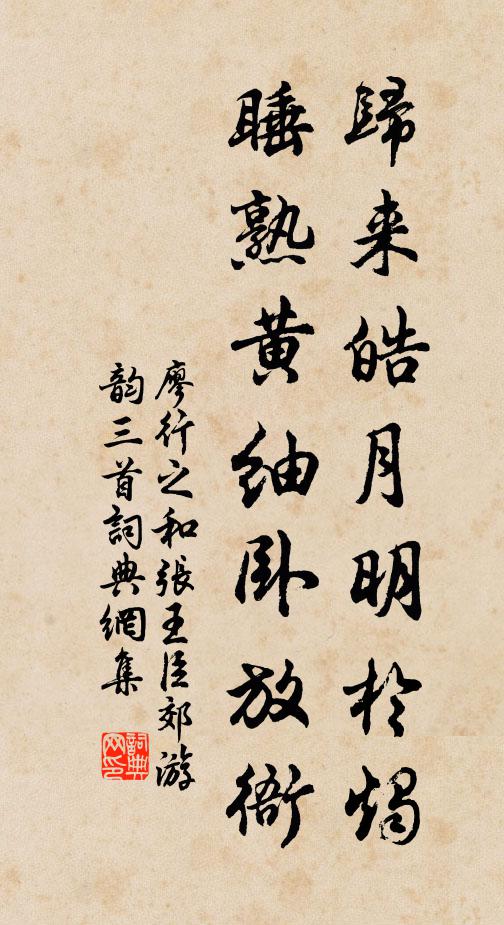 歸来皓月明於燭
睡熟黄紬卧放衙
廖行之和張王臣郊游
韵三首詞典網集
詞典网印